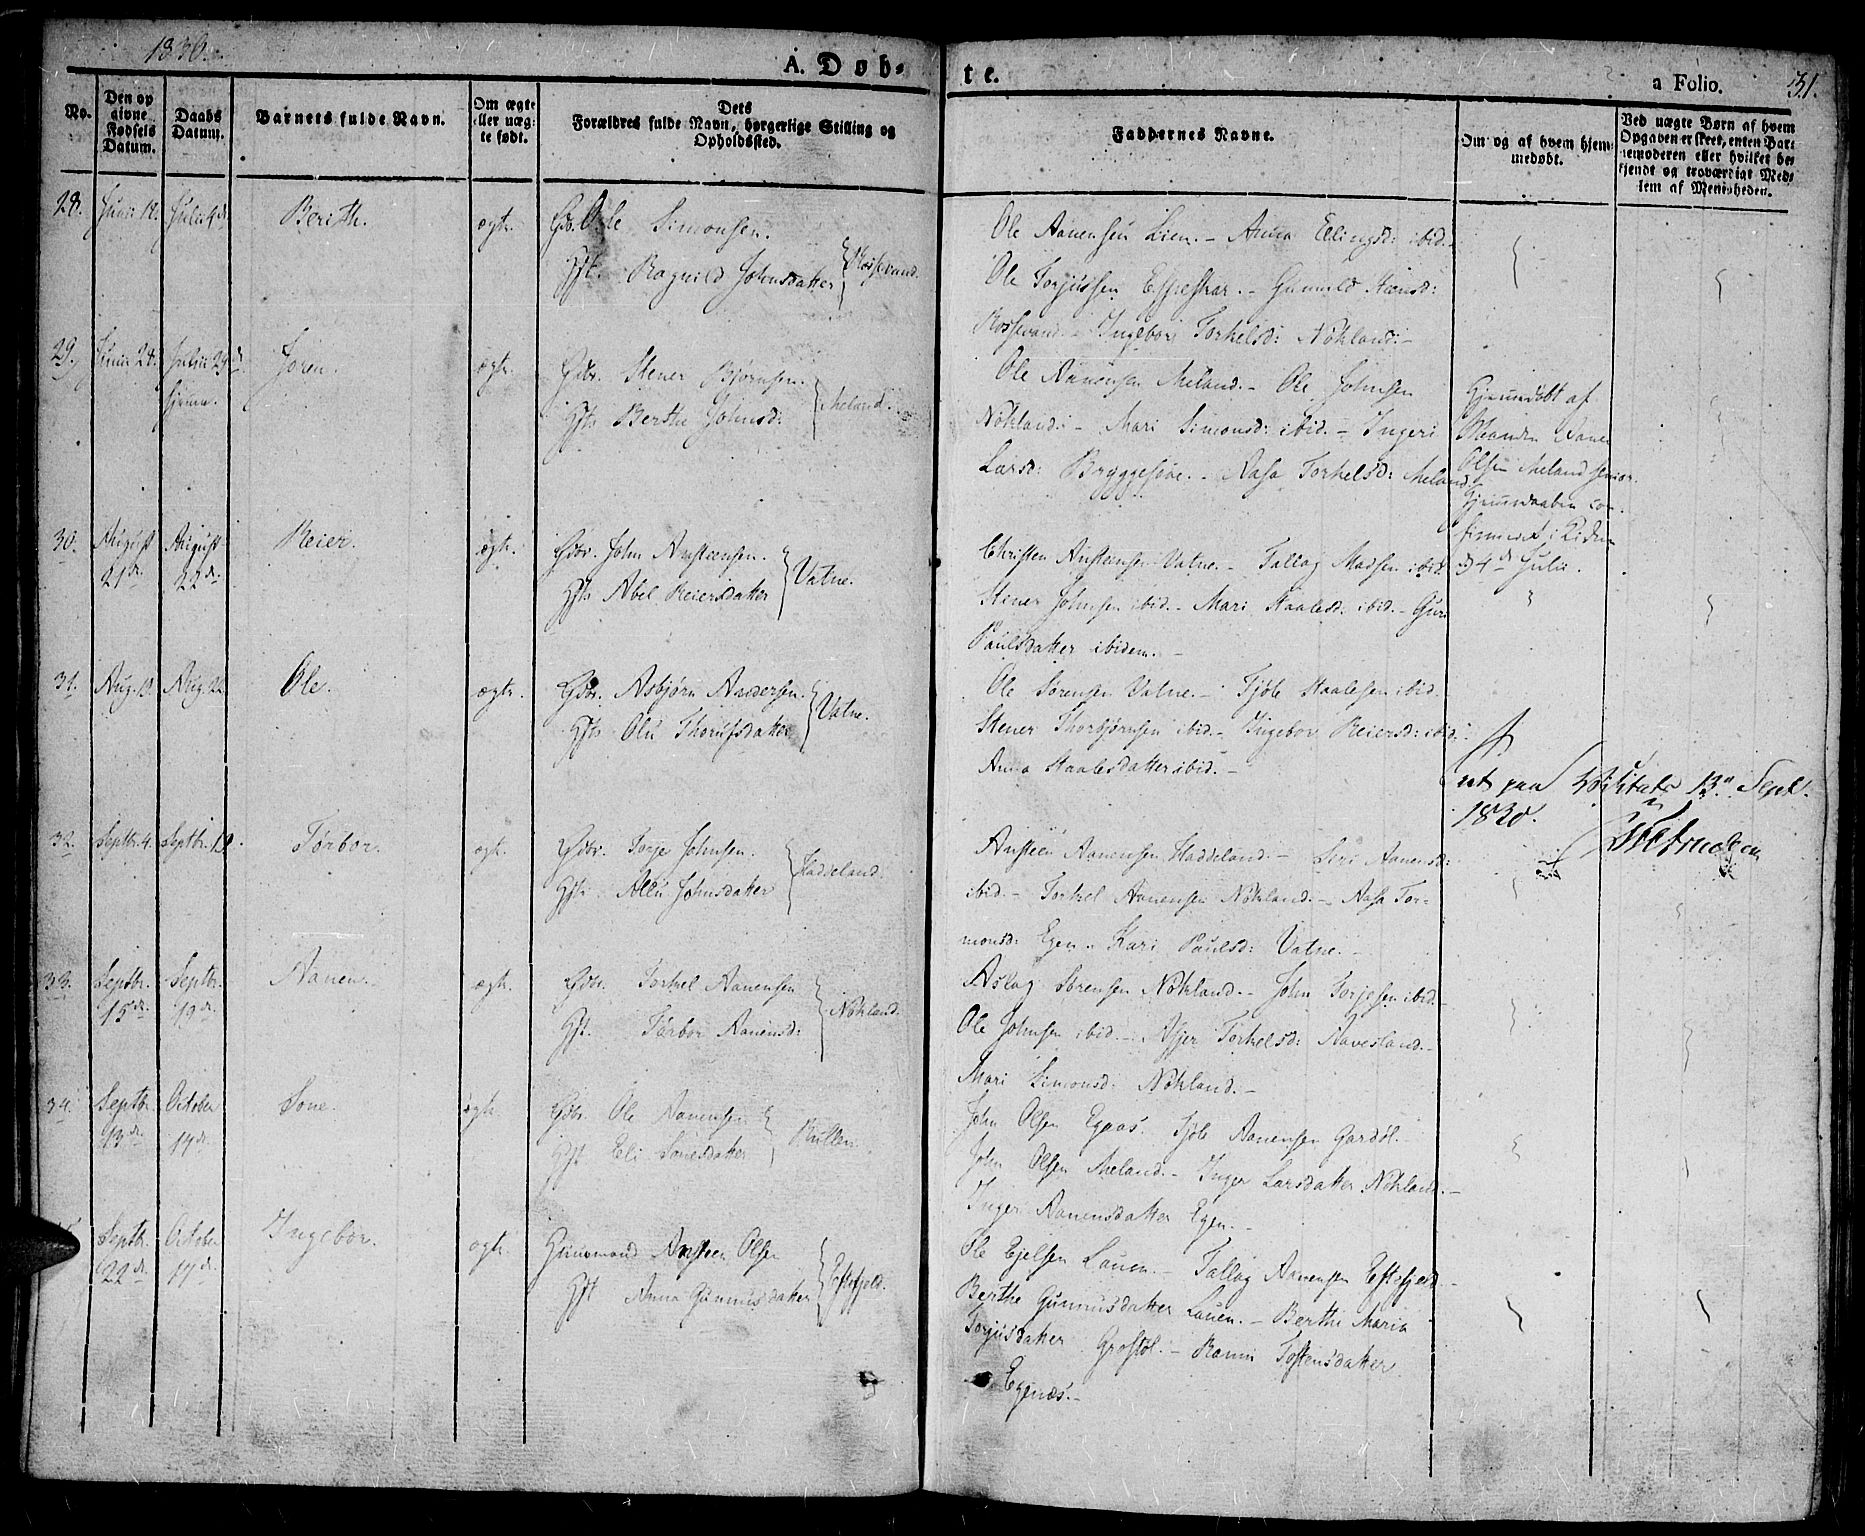 1830.
A. Døb-
te.
a Folio.
31.
No.
Den op
givne
Fødsels
Datum.
Daabs
Datum.
Barnets fulde Navn.
Om ægte
eller uæg-
te født.
Dets
Forældres fulde Navn, borgerlige Stilling og
Opholdssted.
Faddernes Navne.
Om og af hvem hjem-
medøbt.
Ved uægte Børn af hvem
Opgaven er skeet, enten Bar-
nemoderen eller hvilket be-
kjendt og troværdigt Med-
lem af Menigheden.
28. Junii 12. Julii 4de Berith. ægte. Gdbr. Ole Simonsen.
Hst. Ragnild Johnsdatter Rossevand.
Ole Aanensen Lien. - Anna Ellingsd: ibid. -
Ole Torjussen Espeskar. - Gunnild
Rossevand. - Ingebor Torkelsd: Nøkland. -
29. Junii 28. Julii 29de Joren. ægte. Gdbr. Stener Bjørnsen.
hjemme.
Hst. Berthe Johnsd: Meland.
Ole Aanensen Meland. - Ole Johnsen
Nøkland. - Mari Simonsd: ibid. - Ingeri
Larsd: Bryggesaae. - Aasa Torkelsd: Meland
Hjemmedøbt af
Aanen
Olsen Meland senior.
Hjemmedaaben con-
firmeret i Kirken
d 4de Julii.
30. August
21de August
22de Reier. ægte. Gdbr. John Ansteensen.
Hst. Abel Reiersdatter Vatne.
Christen Ansteensen Vatne. - Tallag Madsen ibid.
Stener Johnsen ibid. - Mari Staalesd: ibid. - Guri
Paulsdatter ibidem. -
31. Aug. 13. Aug. 22. Ole. ægte. Gdbr. Asbjørn Andersen.
Hst. Olu Thorufsdatter Vatne.
Ole Sørensen Vatne. - Tjøle Staalesen ibid.
Stener Thorbjørnsen ibid. - Ingebor Reiersd: ibid:
Anna Staalesdatter ibid. -
paa Visitats 13de Septr.
1830.
32. Septbr. 4. Septbr. 12. Tørbor. ægte. Gdbr. Torje Johnsen.
Hst. Allu Johnsdatter Haddeland.
Ansteen Aanensen Haddeland. - Siri Aanensd:
ibid. - Torkel Aanensen Nøkland. - Aasa Tor-
monsd: Egen. - Kari Paulsd: Vatne. -
33. Septbr.
15de Septbr.
19de Aanen. ægte. Gdbr. Torkel Aanensen
Hst. Tørbor Aanensd: Nøkland.
Aslag Sørensen Nøkland. - John Torjesen ibid. -
Ole Johnsen ibid. - Asjer Torkelsd: Aavesland. -
Mari Simonsd: Nøkland. -
34. Septbr.
13de October
17de Sone. ægte. Gdbr. Ole Aanensen
Hst Eli Sonesdatter Kullen.
John Olsen Egaas. Tjøle Aanensen Gardøl. -
John Olsen Meland. - Inger Larsdatter Nøkland. -
Inger Aanensdatter Egen. -
Septbr.
22de October
17de Ingebor. ægte. Huusmand Ansteen Olsen
Hst Anna Gunnusdatter Eftesfjeld.
Ole Ejelsen Lauen. - Tallag Aanensen Eftesfjeld -
Berthe Gunnusdatter Lauen. - Berthe Maria
Torjusdatter Grostøl. - Ranni Tostensdatter
Egenæs. -